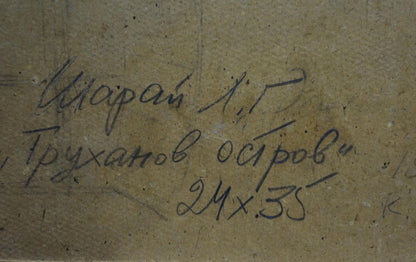 Шарай Л.Г.
„Труханов остров“
24х35